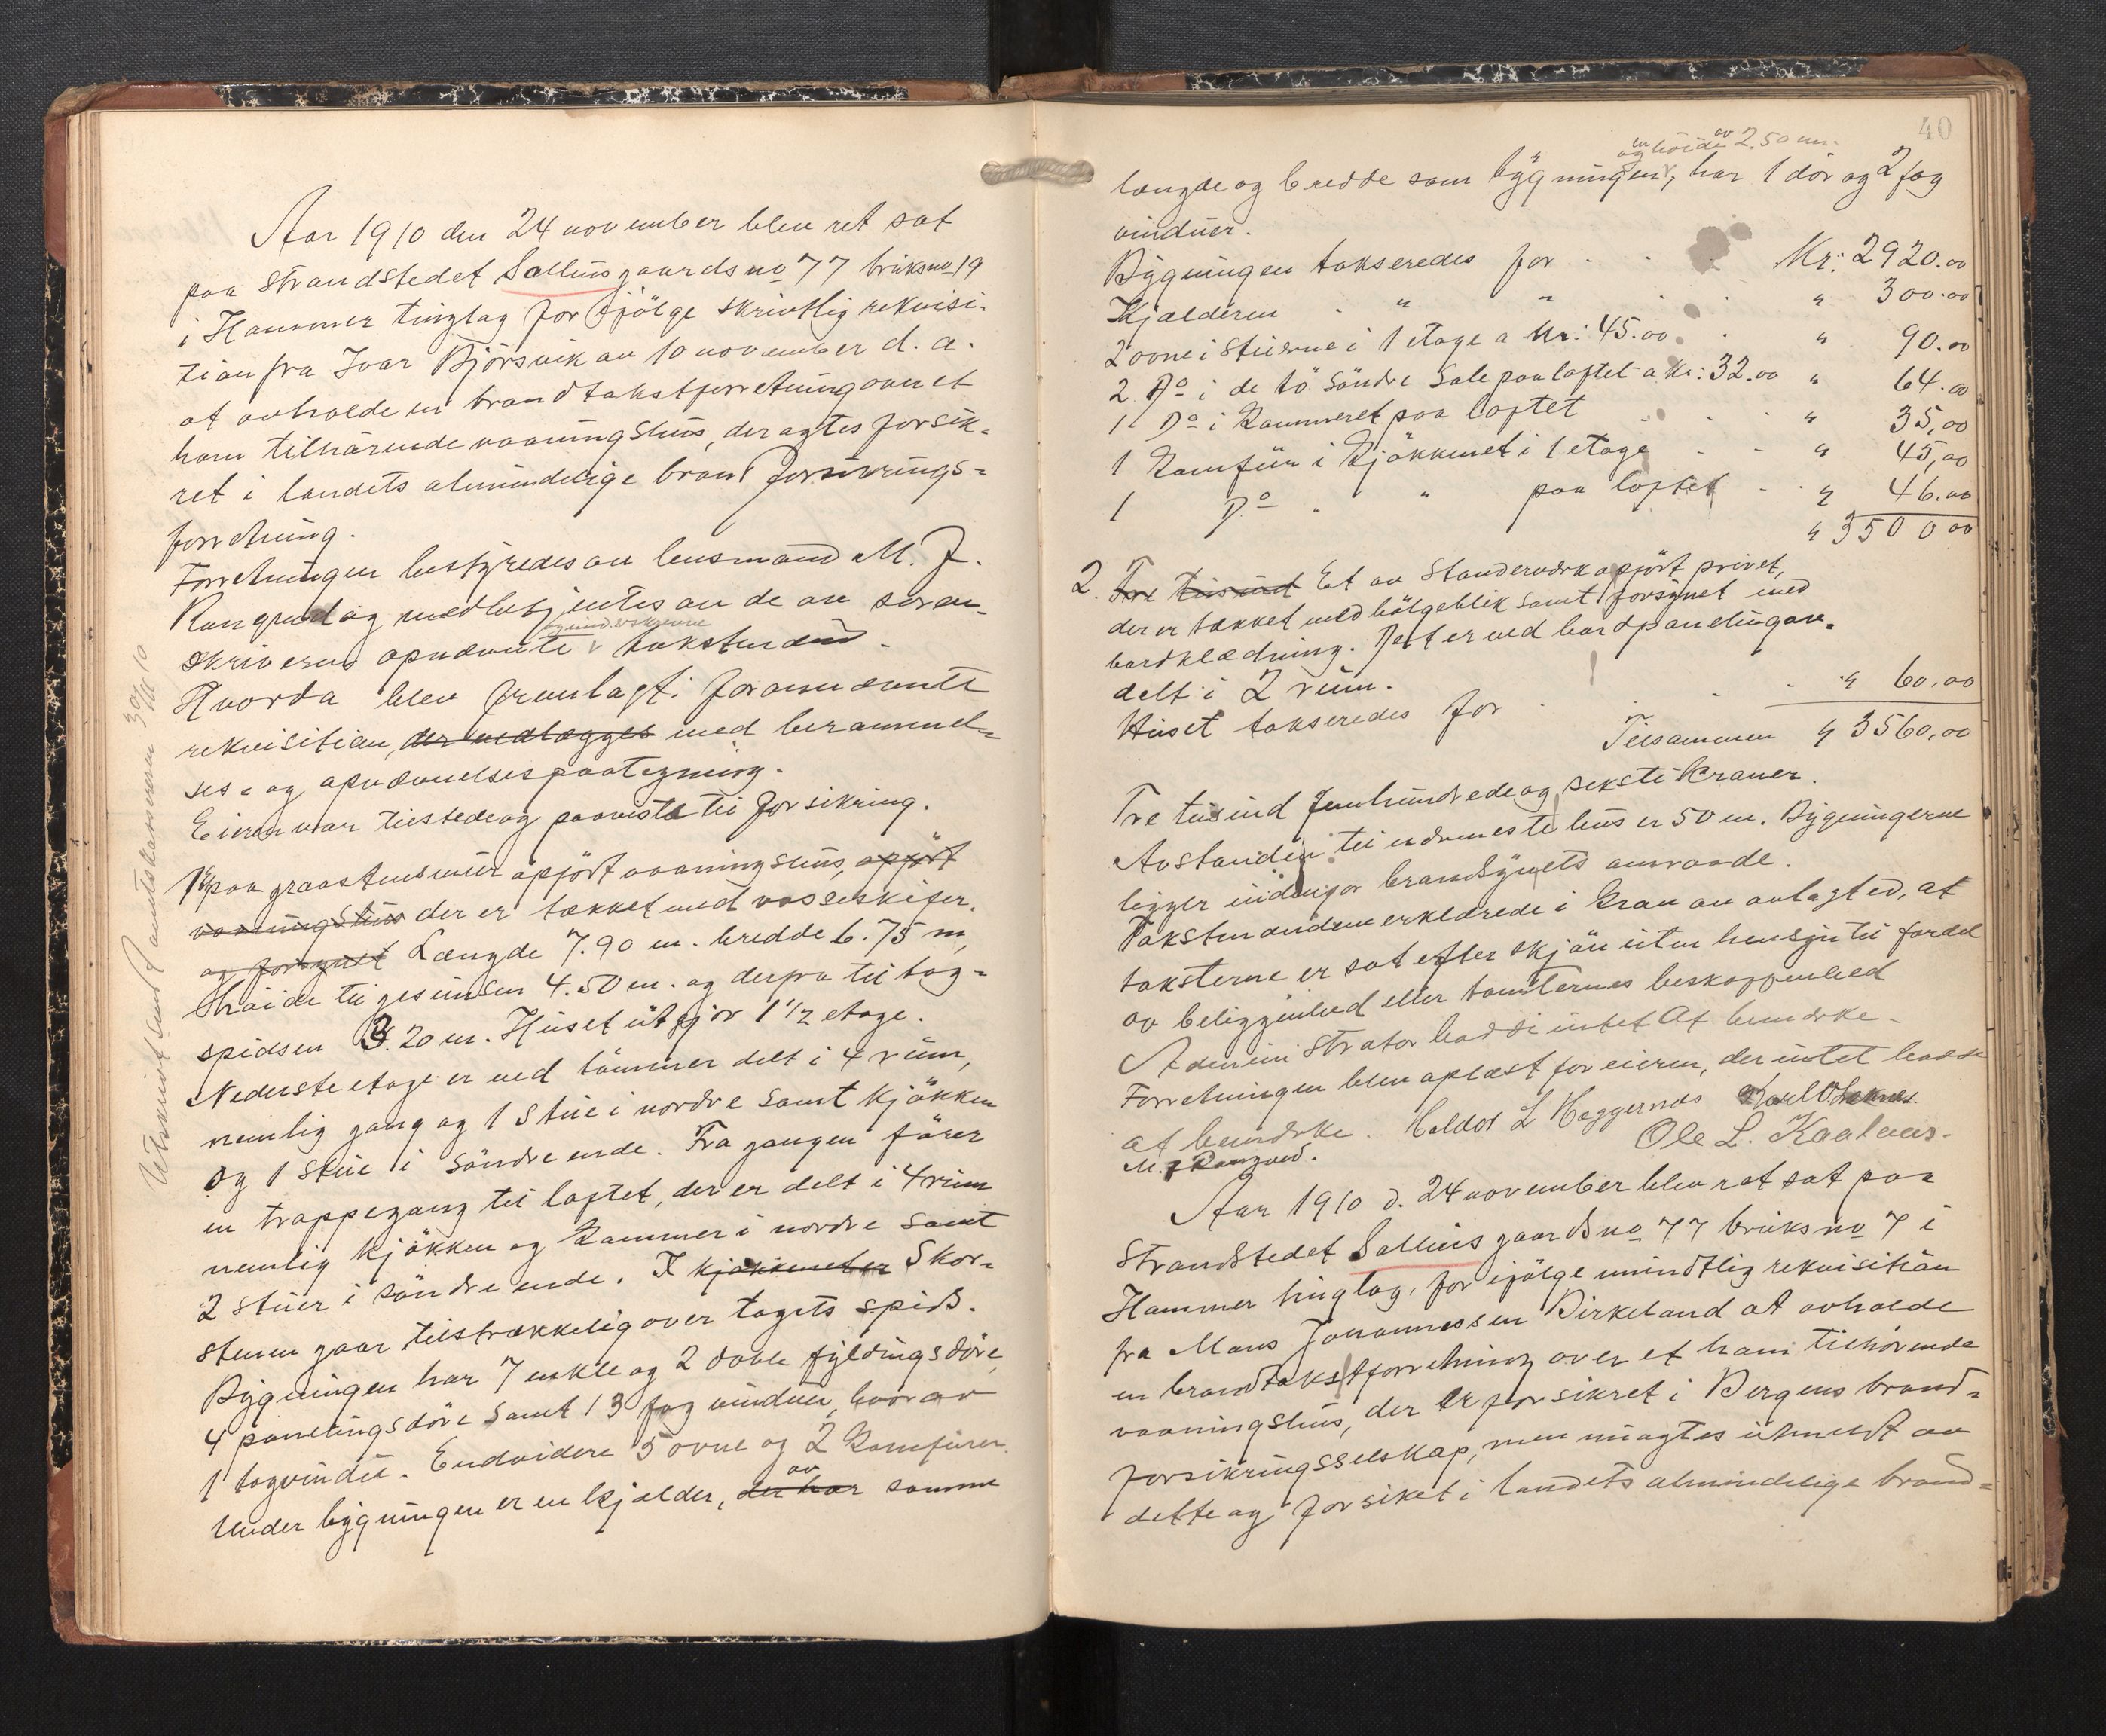 Aar 1910 den 24 november blev ret sat
paa strandstedet Salhus gaardsno 77 bruksno 19
i Hammer tinglag for ifölge skriftlig rekvisi-
tion fra Ivar Björsvik av 10 november d. a.
at avholde en brandtakstforretning over et
ham tilhörende vaaningshus, der agtes forsik-
ret i landets almindelige brand forsikrings-
forretning.
Forretningen bestyredes av lensmand M. J.
Rongved og medbetjentes av de av soren-
skriveren opnævnte takstmænd.
Hvorda blev fremlagt: foranævnte
rekvisition, der vedlægges med berammel-
ses- og opnævnelsespaategning.
Eieren var tilstede og paaviste til forsikring.
1 paa graastensmur opfört vaaningshus, opfört
vaaningshus der er tækket med vosseskifer.
og forsynet Længde 7.90 m. bredde 6.75 m,
höide til gesimsen 4.50 m. og derfra til tag-
spidsen 3.20 m. Huset utgjör 1 1/2 etage.
Nederste etage er ved tömmer delt i 4 rum,
nemlig gang og 1 stue i nordre samt kjökken
og 1 stue i söndre ende. Fra gangen förer
en trappegang til loftet, der er delt i 4 rum
nemlig kjökken og kammer i nordre samt
2 stuer i söndre ende. I kjökkenet er Skor-
stenen gaar tilstrækkelig over tagets spids.
Bygningen har 7 enkle og 2 doble fyldingsdöre,
4 panelingsdöre samt 13 fag vinduer, hvorav
1 tagvindu. Endvidere 5 ovne og 2 komfurer.
Under bygningen er en kjælder, der har av samme
Utskrevet sendt amtskasereren 30/11 10
40
og höide av 2.50 m.
længde og bredde som bygningen, har 1 dör og 2 fag
vinduer.
Bygningen takseredes for Kr: 2920.00
Kjælderen " " " 300.00
2 ovne i stuerne i 1 etage a kr: 45.00 " 90.00
2 Do i de to söndre Sale paa loftet a kr: 32.00 " 64.00
1 Do i kammeret paa loftet " 35,00
1 Komfur i kjökkenet i 1 etage " 45,00
1 Do " " paa loftet " 46.00
" 3500 00
2. Tre tusind Et av Standerværk opfört privet,
der er tækket med bölgeblik samt forsynet med
bordklædning. Det er ved bordpaneling av-
delt i 2 rum.
Huset takseredes for " 60.00
Tilsammen " 3560.00
Tre tusind femhundrede og seksti Kroner.
Avstanden til nærmeste hus er 50 m. Bygningerne
ligger indenfor brandsynets omraade.
Takstmændene erklærede i kraft av avlagt ed, at
taksterne er sat efter skjön uten hensyn til fordel
av beliggenhed eller tomternes beskaffenhed
Administrator hadde intet at bemærke.
Forretningen blev oplæst for eieren, der intet hadde
at bemærke. Haldor L Haggernes
Ole L. Kaalaas.
M. J Rongved.
Aar 1910 d. 24 november blev ret sat paa
Strandstedet Salhus gaardsno 77 bruksno 7 i
Hammer tinglag, for ifölge mundtlig rekvisition
fra Mons Johannessen Birkeland at avholde
en brandtakstforretning over et ham tilhörende
vaaningshus, der er forsikret i Bergens brand-
forsikringsselskap, men nu agtes utmeldt av
dette og forsikret i landets almindelige brand-